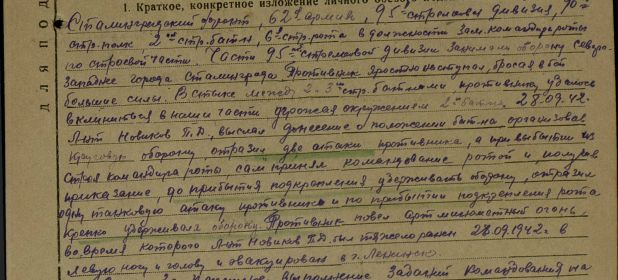 I. Краткое, конкретное изложение личного боевого
ДЛЯ ПОД
Сталинградский фронт, 62ая армия, 95 стрелковая дивизия, 90й
стр. полк 2ой стр. батн, 6я стр. рота в должности Зам. командира роты
по строевой части. Части 95ой стрелковой дивизии занимали оборону северо-
западнее города Сталинграда. Противник яростно наступал, бросая в бой
большие силы. В стыке между 2-3им стр. батн-ами противнику удалось
вклиниться в наши части угрожая окружением 2й батн. 28.09.42.
Л-нт Новиков П.Д., выслал донесение о положении бат-на организовал
круговую оборону, отразил две атаки противника, а при выбытии из
строя командира роты, сам принял командование ротой и получив
приказание, до прибытия подкрепления удерживать оборону, отразил
одну танковую атаку противника и по прибытии подкрепления рота
крепко удерживала оборону. Противник повел арт миномётный огонь,
во время которого Л-нт Новиков П.Д. был тяжело ранен 28.09.1942г. в
левую ногу и голову и эвакуирован в г. Ленинск.
выполнение заданий командования на